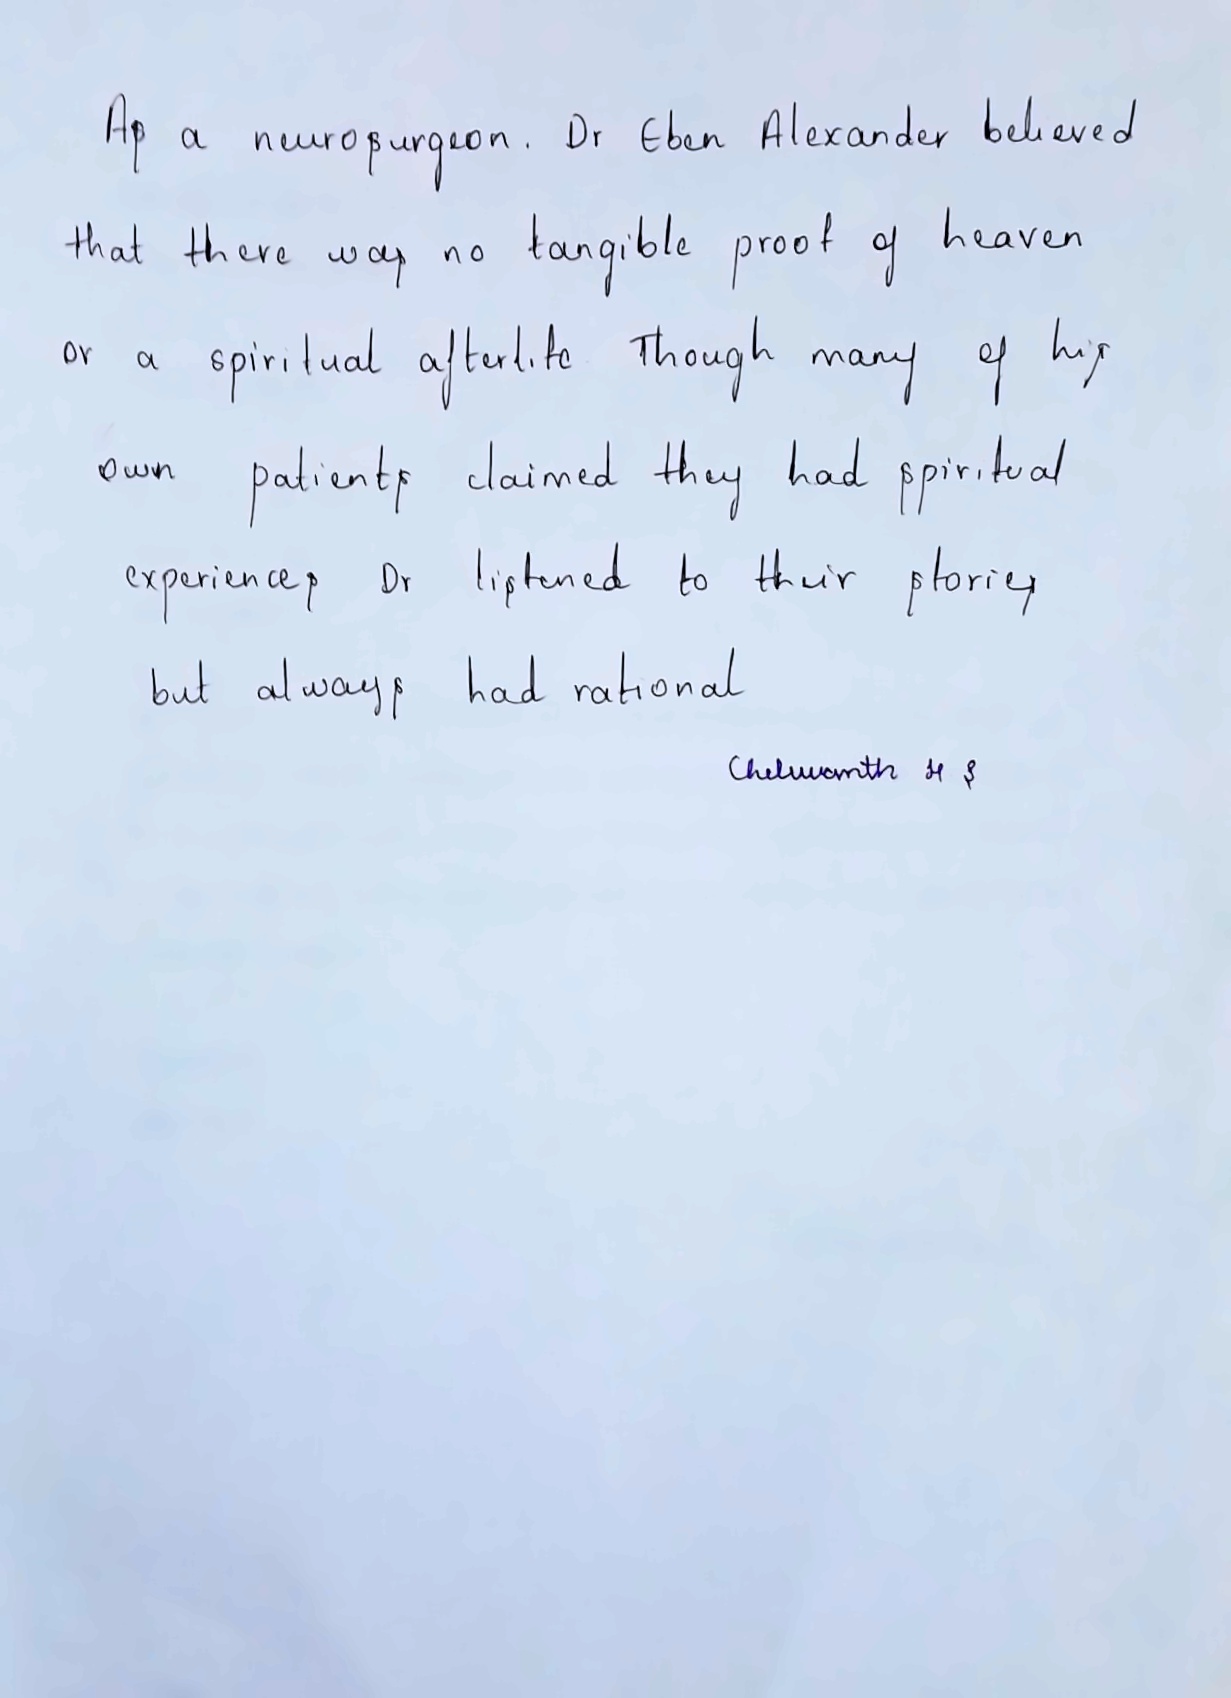 As a neurosurgeon. Dr Eben Alexander believed
that there was no tangible proof of heaven
or a spiritual afterlife Though many of his
own patients claimed they had spiritual
experiences Dr listened to their stories
but always had rational
H S